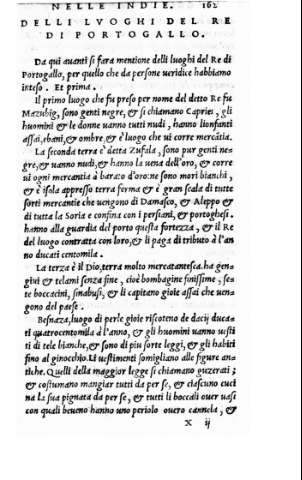 NELLE INDIE. 162
DELLI LVOGHI DEL RE
DI PORTOGALLO.
Da qui auanti si fara mentione delli luoghi del Re di
Portogallo, per quello che da persone veridice habbiamo
inteso. Et prima.
Il primo luogo che fu preso per nome del detto Re fu
Mazubig, sono genti negre, & si chiamano Capriei, gli
huomini & le donne vanno tutti nudi, hanno lionfanti
assai, ebani, & ombre, & è luogo che ui corre mercãtia.
La seconda terra è detta Zufala, sono pur genti ne
gre, & uanno nudi, & hanno la uena dell'oro, & corre
ui ogni mercantia à barato d'oro: ne sono mori bianchi,
& è isola appresso terra ferma & è gran scala di tutte
sorti mercantie che uengono di Damasco, & Aleppo &
di tutta la Soria e confina con i persiani, & portoghesi.
hanno alla guardia del porto questa fortezza, & il Re
del luogo contratta con loro, & li paga di tributo à l'an
no ducati centomila.
La terza è il Dio, terra molto mercatantesca. ha gen
giui & telami senza fine, cioè bombagine finissime, ses
te boccacini, sinabusi, & li capitano gioie assai che uen
gono del paese.
Besnaza, luogo di perle gioie riscoteno de dacij duca
ti quatrocentomila à l'anno, & gli huomini uanno uesti
ti di tele bianche, & sono di piu sorte leggi, & gli habiti
fino al ginocchio. Li uestimenti somigliano alle figure an
tiche. Quelli della maggior legge si chiamano guzerati;
& costumano mangiar tutti da per se, & ciascuno cuci
na la sua pignata da per se, & tutti li boccali ouer uasi
con quali beueno hanno uno periolo ouero cannela, &
X ij